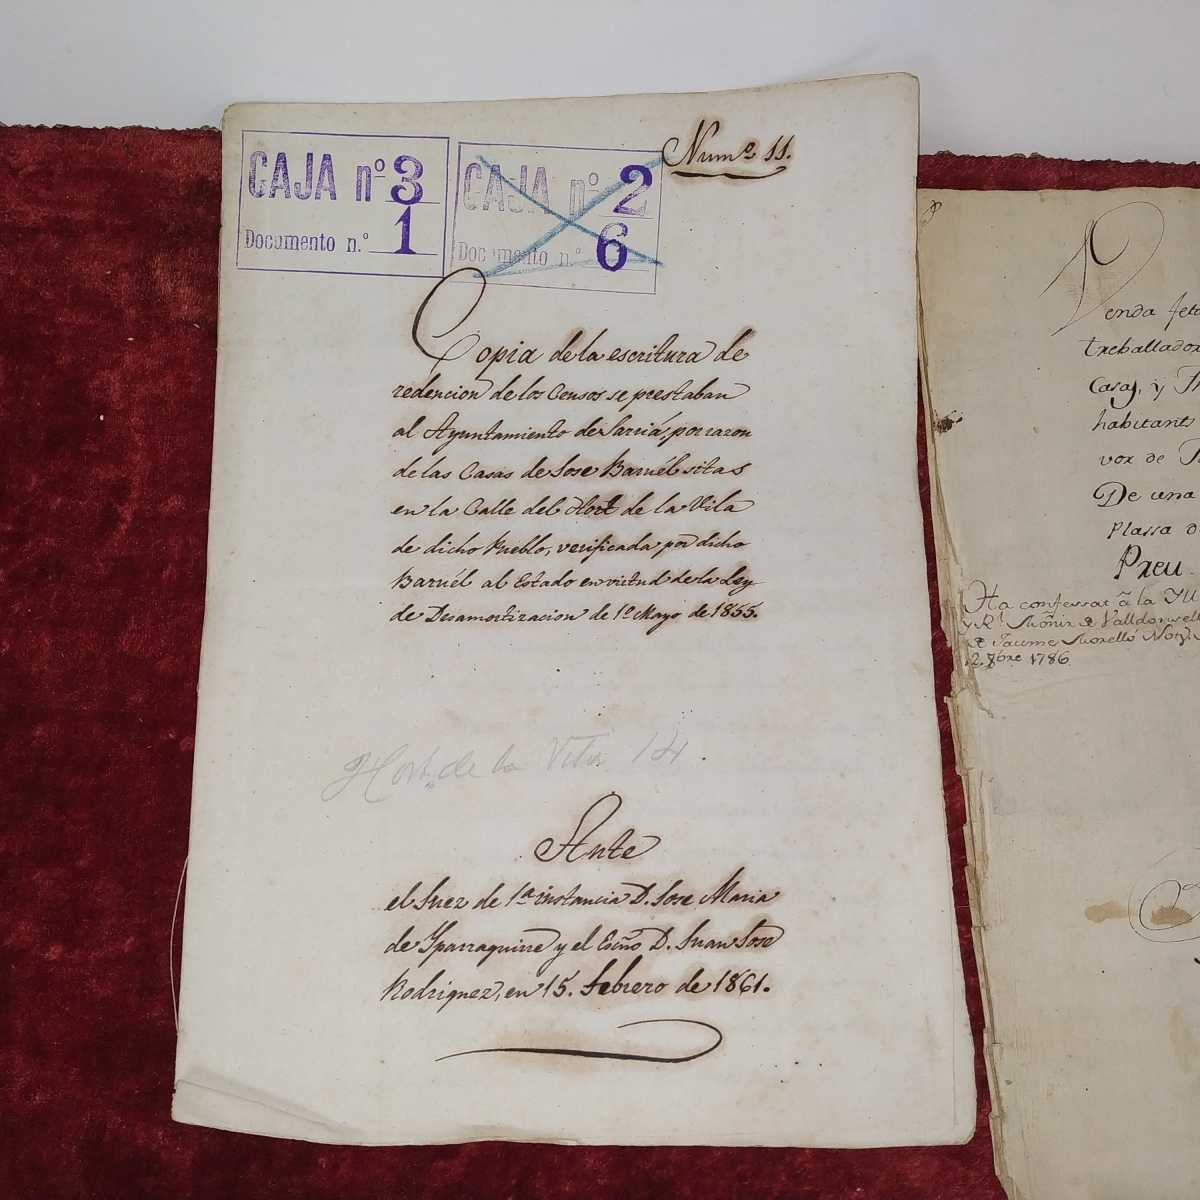 CAJA nº 3
Documento n.º 1
CAJA nº 2
Documento n.º 6
Numº 11.
Copia de la escritura de
redencion de los Censos se prestaban
al Ayuntamiento de Sarriá por razon
de las Casas de Jose Baruél sitas
en la Calle del Hort de la Vila
de dicho Pueblo, verificada por dicho
Baruél al Estado en virtud de la Ley
de Desamortizacion de 1º Mayo de 1855.
Hort de la Vila 14.
Ante
el Juez de 1ª instancia D. Jose Maria
de Yparraguirre y el Esño D. Juan Jose
Rodriguez, en 15. Febrero de 1861.
Venda feta
treballador
Casas, y
habitants
vox de
De una
Plassa d
Preu
Ha confessat â la Ill
y Rt Señor
Jaume Morelló Noty
12. 9bre 1786